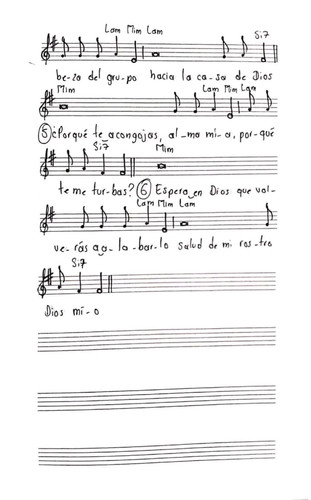 Lam Mim Lam Si7
be-za del gru-po hacia la ca-sa de Dios
Mim Lam Mim Lam
⑤ ¿Porqué te acongojas, al-ma mí-a, por-qué
Si7 Mim
te me tur-bas? ⑥ Espera en Dios que vol-
Lam Mim Lam
ve-rás a a-la-bar-lo salud de mi ros-tro
Si7
Dios mí-o